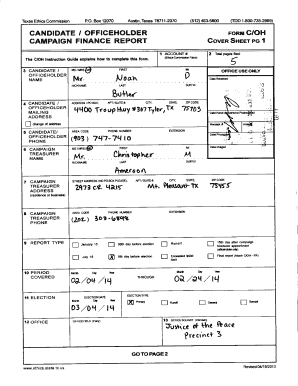 Texas Ethics Commission P.O. Box 12070 Austin, Texas 78711-2070 (512) 463-5800 (TDD 1-800-735-2989)
CANDIDATE / OFFICEHOLDER FORM C/OH
CAMPAIGN FINANCE REPORT COVER SHEET PG 1
The C/OH Instruction Guide explains how to complete this form.
1 ACCOUNT # (Ethics Commission Filers)
2 Total pages filed:
5
3 CANDIDATE / OFFICEHOLDER NAME
MS / MRS / MR FIRST MI
Mr Noah D
NICKNAME LAST SUFFIX
Butler
OFFICE USE ONLY
Date Received
4 CANDIDATE / OFFICEHOLDER MAILING ADDRESS
change of address
ADDRESS / PO BOX; APT / SUITE #; CITY; STATE; ZIP CODE
4400 Troup Hwy #307 Tyler, Tx 75703
5 CANDIDATE / OFFICEHOLDER PHONE
AREA CODE PHONE NUMBER EXTENSION
(903) 747-7410
6 CAMPAIGN TREASURER NAME
MS / MRS / MR FIRST MI
Mr. Christopher M
NICKNAME LAST SUFFIX
Amerson
Receipt # Amount
Date Processed
Date Imaged
7 CAMPAIGN TREASURER ADDRESS
(residence or business)
STREET ADDRESS (NO PO BOX PLEASE); APT / SUITE #; CITY; STATE; ZIP CODE
2973 CR 4215 Mt. Pleasant Tx 75455
8 CAMPAIGN TREASURER PHONE
AREA CODE PHONE NUMBER EXTENSION
9 REPORT TYPE
January 15 30th day before election Runoff 15th day after campaign treasurer appointment (officeholder only)
July 15 8th day before election Exceeded $500 limit Final report (Attach C/OH - FR)
10 PERIOD COVERED
Month Day Year Month Day Year
02/04/14 THROUGH 02/24/14
11 ELECTION
ELECTION DATE ELECTION TYPE
Month Day Year
03/04/14 Primary Runoff General Special
12 OFFICE
OFFICE HELD (if any)
13 OFFICE SOUGHT (if known)
Justice of the Peace
Precinct 3
GO TO PAGE 2
www.ethics.state.tx.us